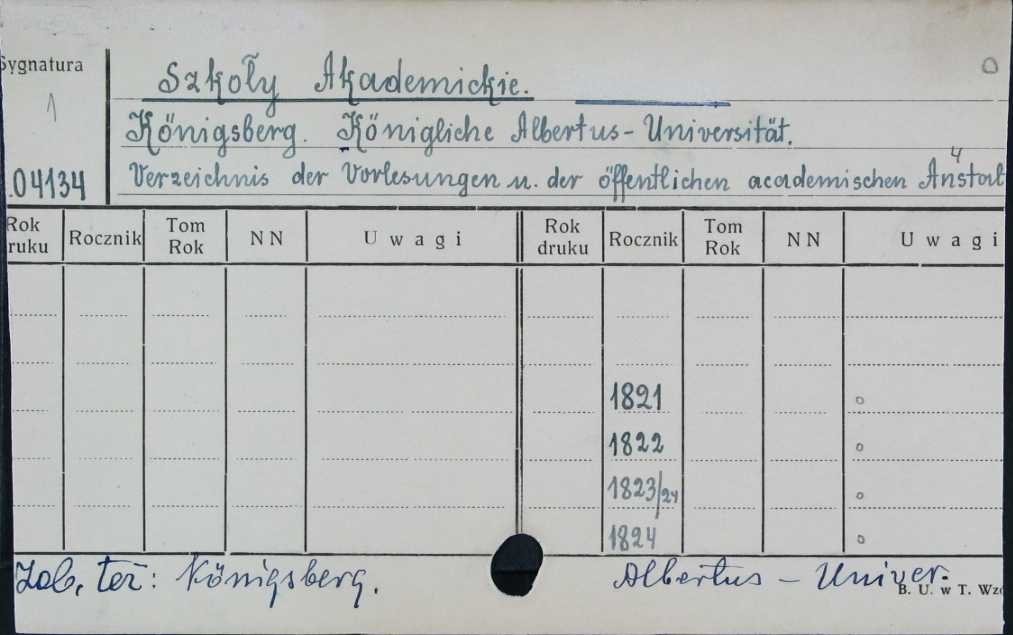 Sygnatura
1
Szkoły Akademickie.
Königsberg. Königliche Albertus-Universität.
.04134 Verzeichnis der Vorlesungen u. der öffentlichen academischen Anstalt
4
Rok druku Rocznik Tom Rok NN Uwagi Rok druku Rocznik Tom Rok NN Uwagi
1821 o
1822 o
1823/24 o
1824 o
Zob. też: Königsberg. Albertus - Univer.
B. U. w T. Wzó